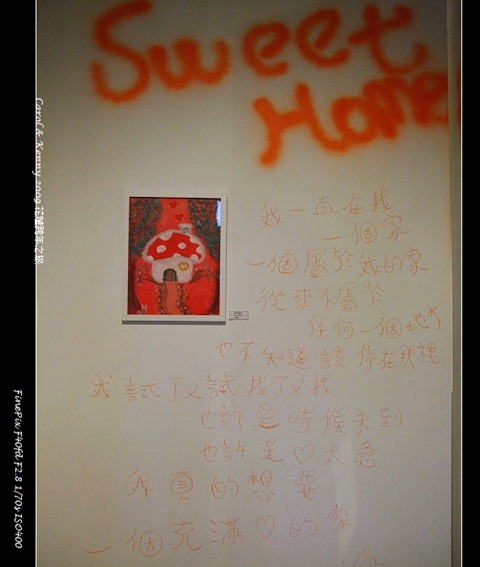 Sweet
Home
我一直在找
一個家
一個屬於我的家
從來不屬於
任何一個地方
也不知道該停在哪裡
我試了又試找了又找
也許是時候未到
也許是♡太急
我真的想要
一個充滿♡的家
Carol & Kenny 2009
FinePix F40fd F2.8 1/70s ISO400